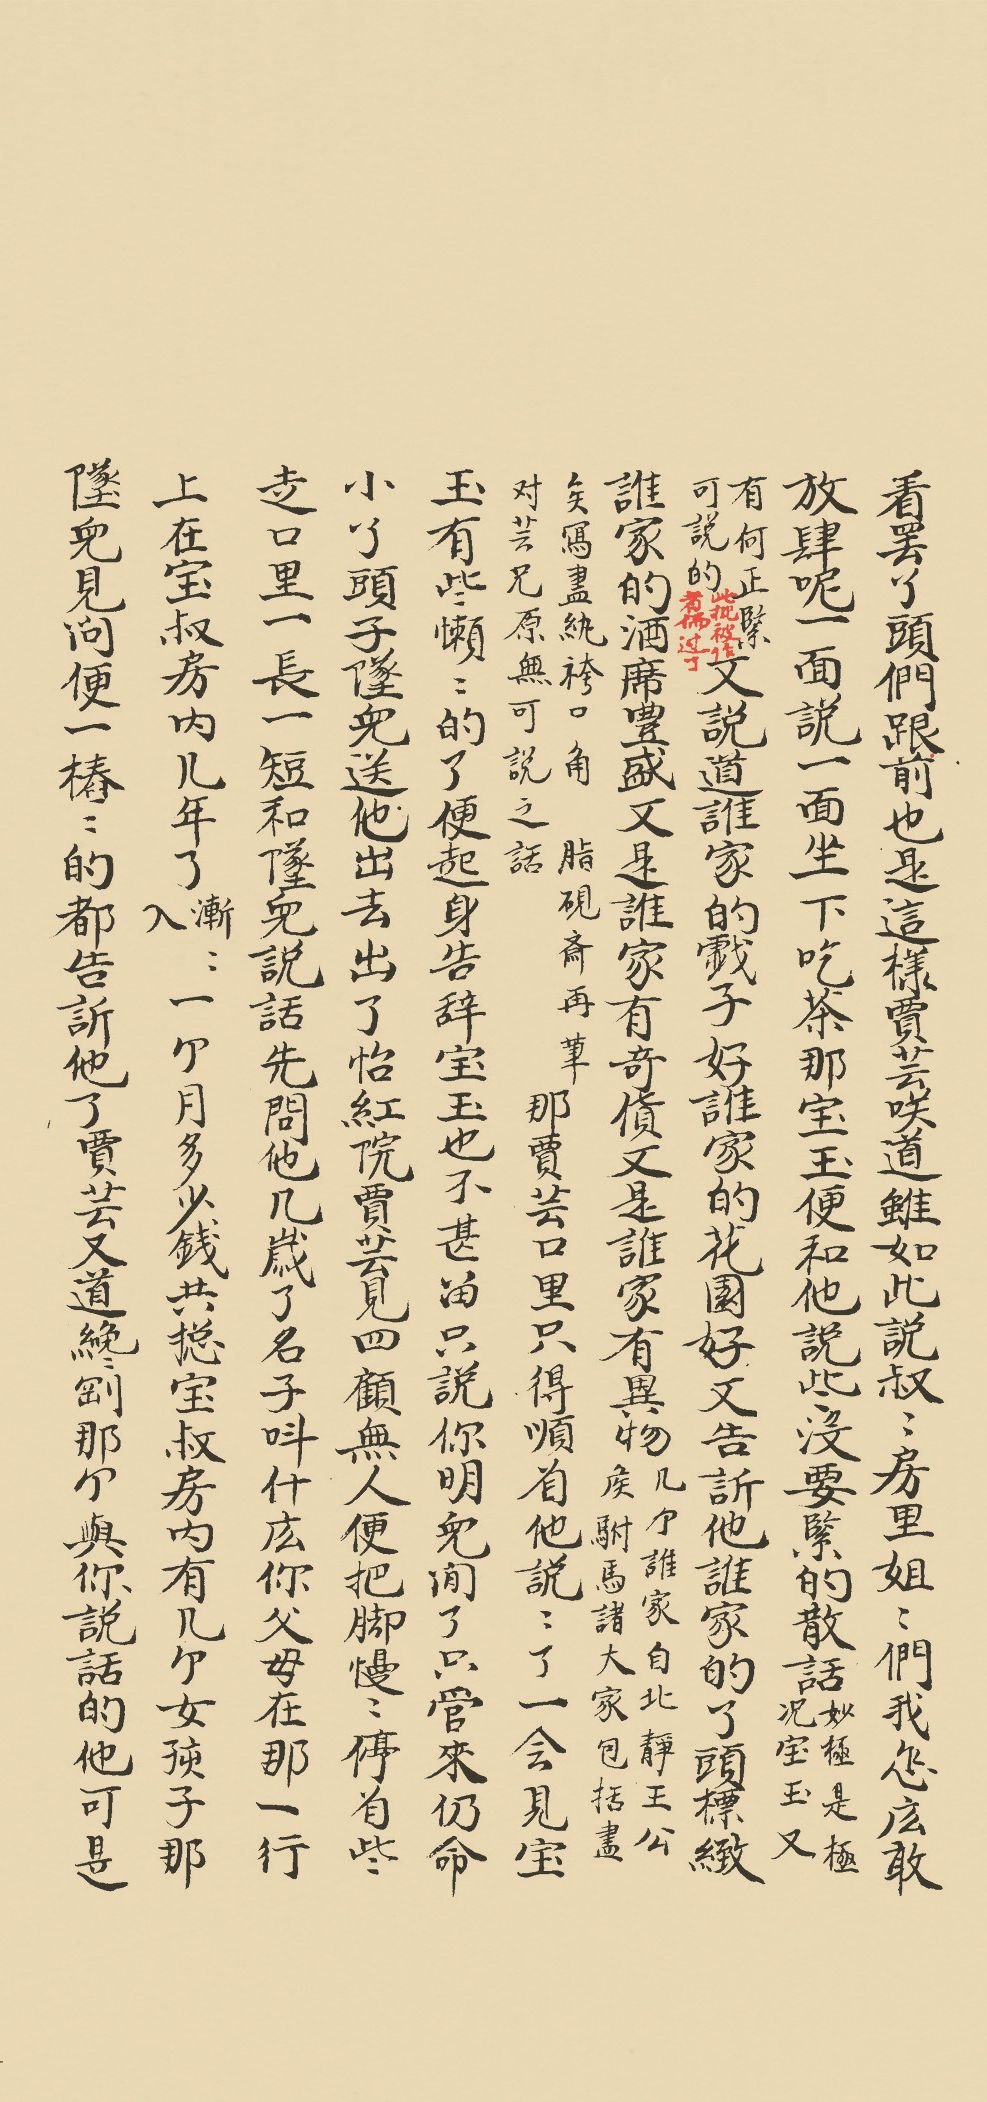 看罢丫頭們跟前也是這樣賈芸咲道雖如此説叔〻房里姐〻們我怎庅敢
放肆呢一面説一面坐下吃茶那宝玉便和他説些没要緊的散話
妙極是極
况宝玉又
有何正緊
可説的
此批被作
者偏过了
又説道誰家的戯子好誰家的花園好又告訴他誰家的丫頭標緻
誰家的酒席豊盛又是誰家有奇貨又是誰家有異物
几个誰家自北靜王公
侯駙馬諸大家包括盡
矣寫盡紈袴口角 脂硯斎再筆
对芸兄原無可説之話
那賈芸口里只得順着他説〻了一会見宝
玉有些懶〻的了便起身告辞宝玉也不甚留只説你明兒閒了只管來仍命
小丫頭子墜兒送他出去出了怡紅院賈芸見四顧無人便把脚慢〻停着些
走口里一長一短和墜兒説話先問他几歳了名子呌什庅你父母在那一行
上在宝叔房内几年了
漸〻
入
一个月多少錢共摠宝叔房内有几个女孩子那
墜兒見问便一樁〻的都告訴他了賈芸又道纔剛那个與你説話的他可是